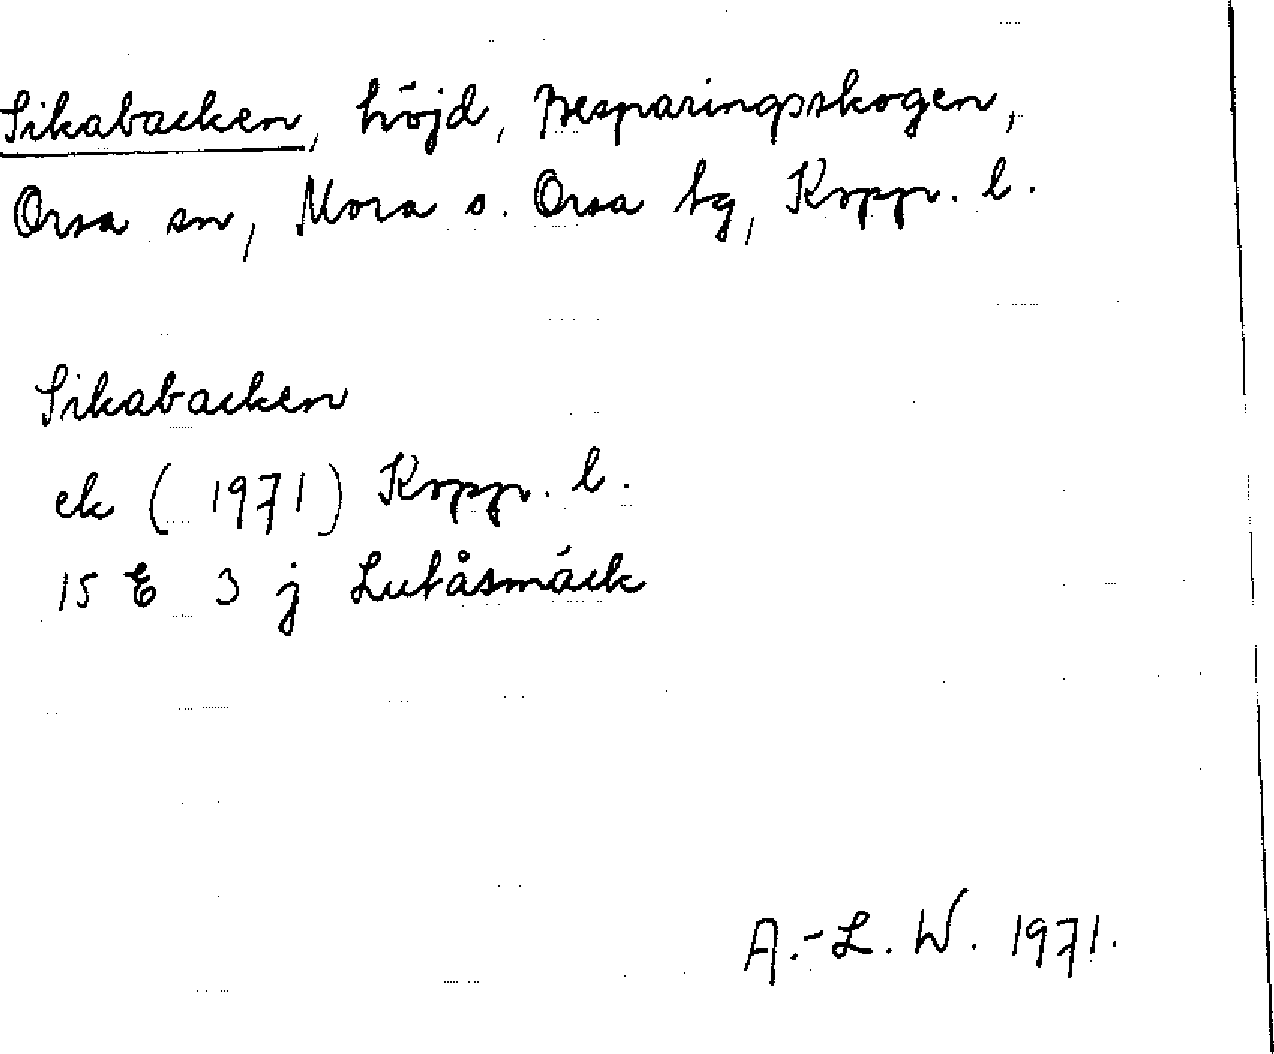 Sikabacken, höjd, Besparingsskogen,
Orsa sn, Mora o. Orsa tg, Kopp. l.
Sikabacken
ek (1971) Kopp. l.
15 E 3 j Lutåsmäck
A.-L. W. 1971.